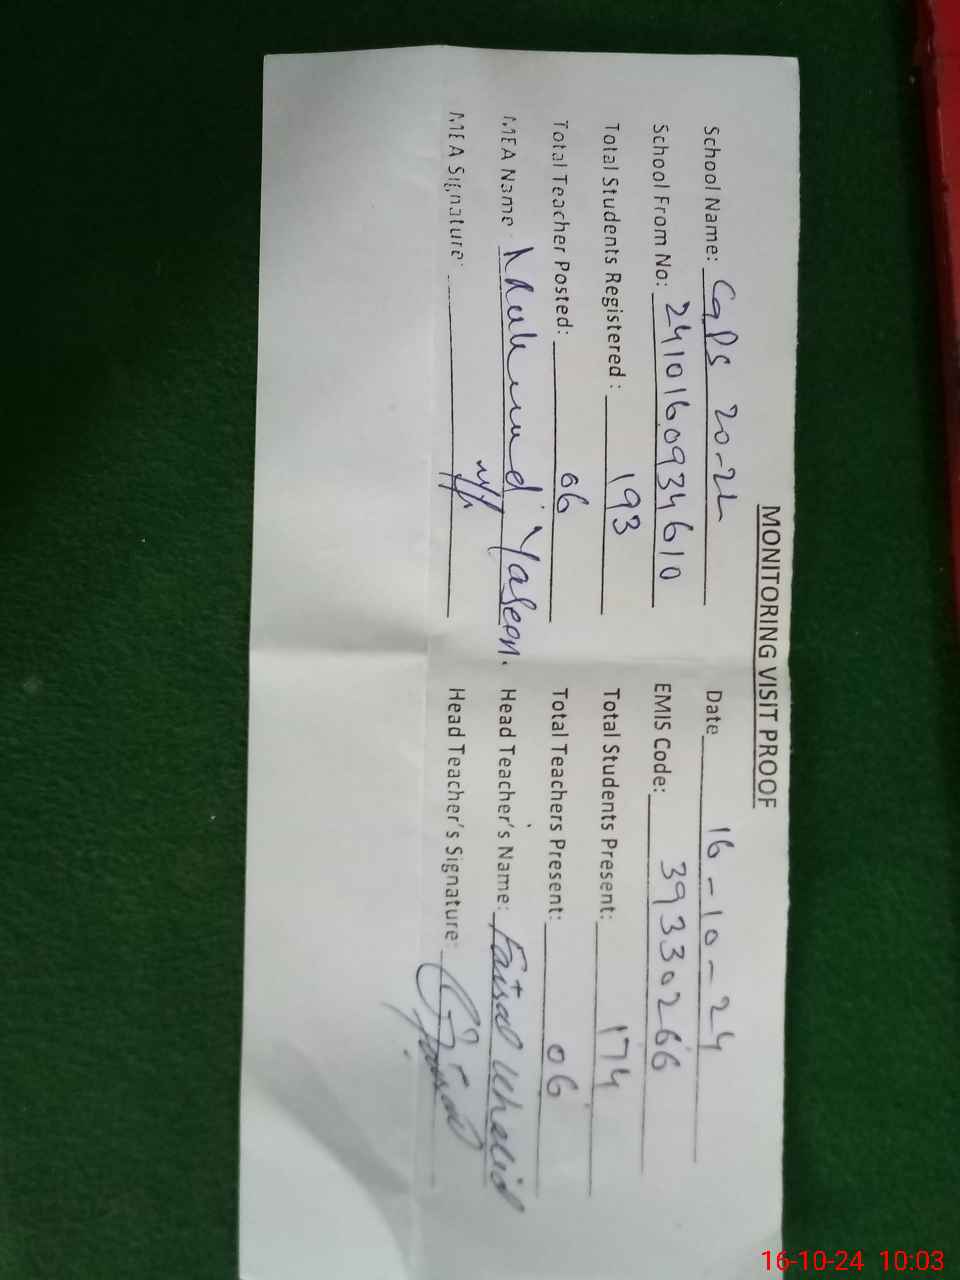 MONITORING VISIT PROOF
School Name: GPS 20-2L Date 16-10-24
School From No: 2410160934610 EMIS Code: 39330266
Total Students Registered: 193 Total Students Present: 174
Total Teacher Posted: 06 Total Teachers Present: 06
MEA Name: Yaseen. Head Teacher's Name: Faisal Khalid
MEA Signature: Head Teacher's Signature:
16-10-24 10:03